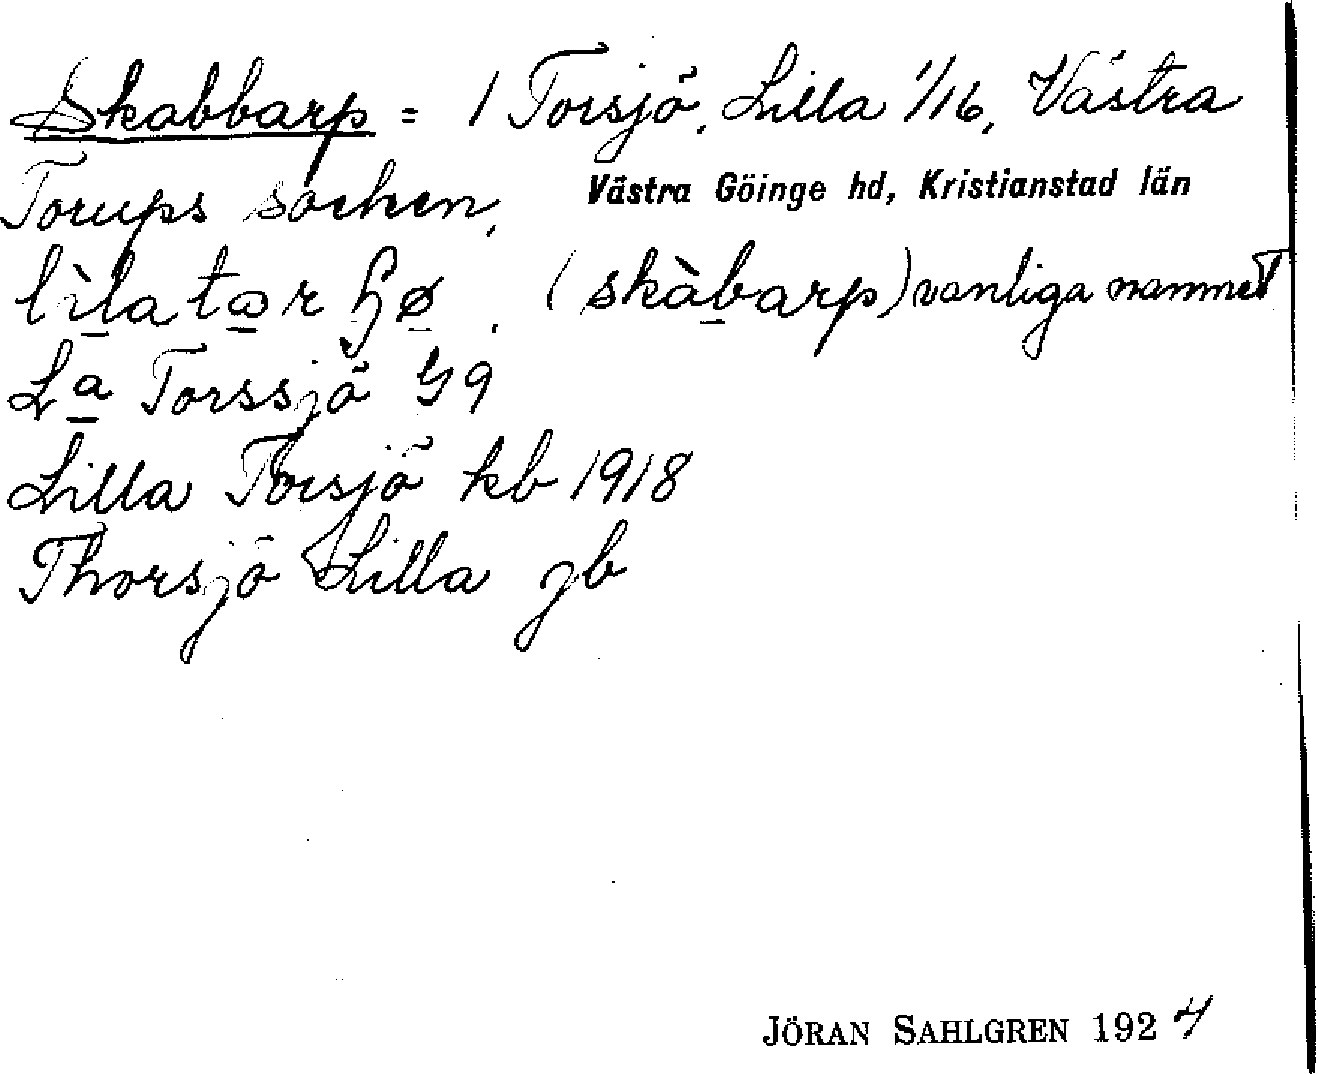 Skabbarp = 1 Torsjö, Lilla 1/16, Västra
Torups socken, Västra Göinge hd, Kristianstad län
(skàbarp) vanliga namnet
La Torssjö G9
Lilla Torsjö kb 1918
Thorsjö Lilla jb
JÖRAN SAHLGREN 1924